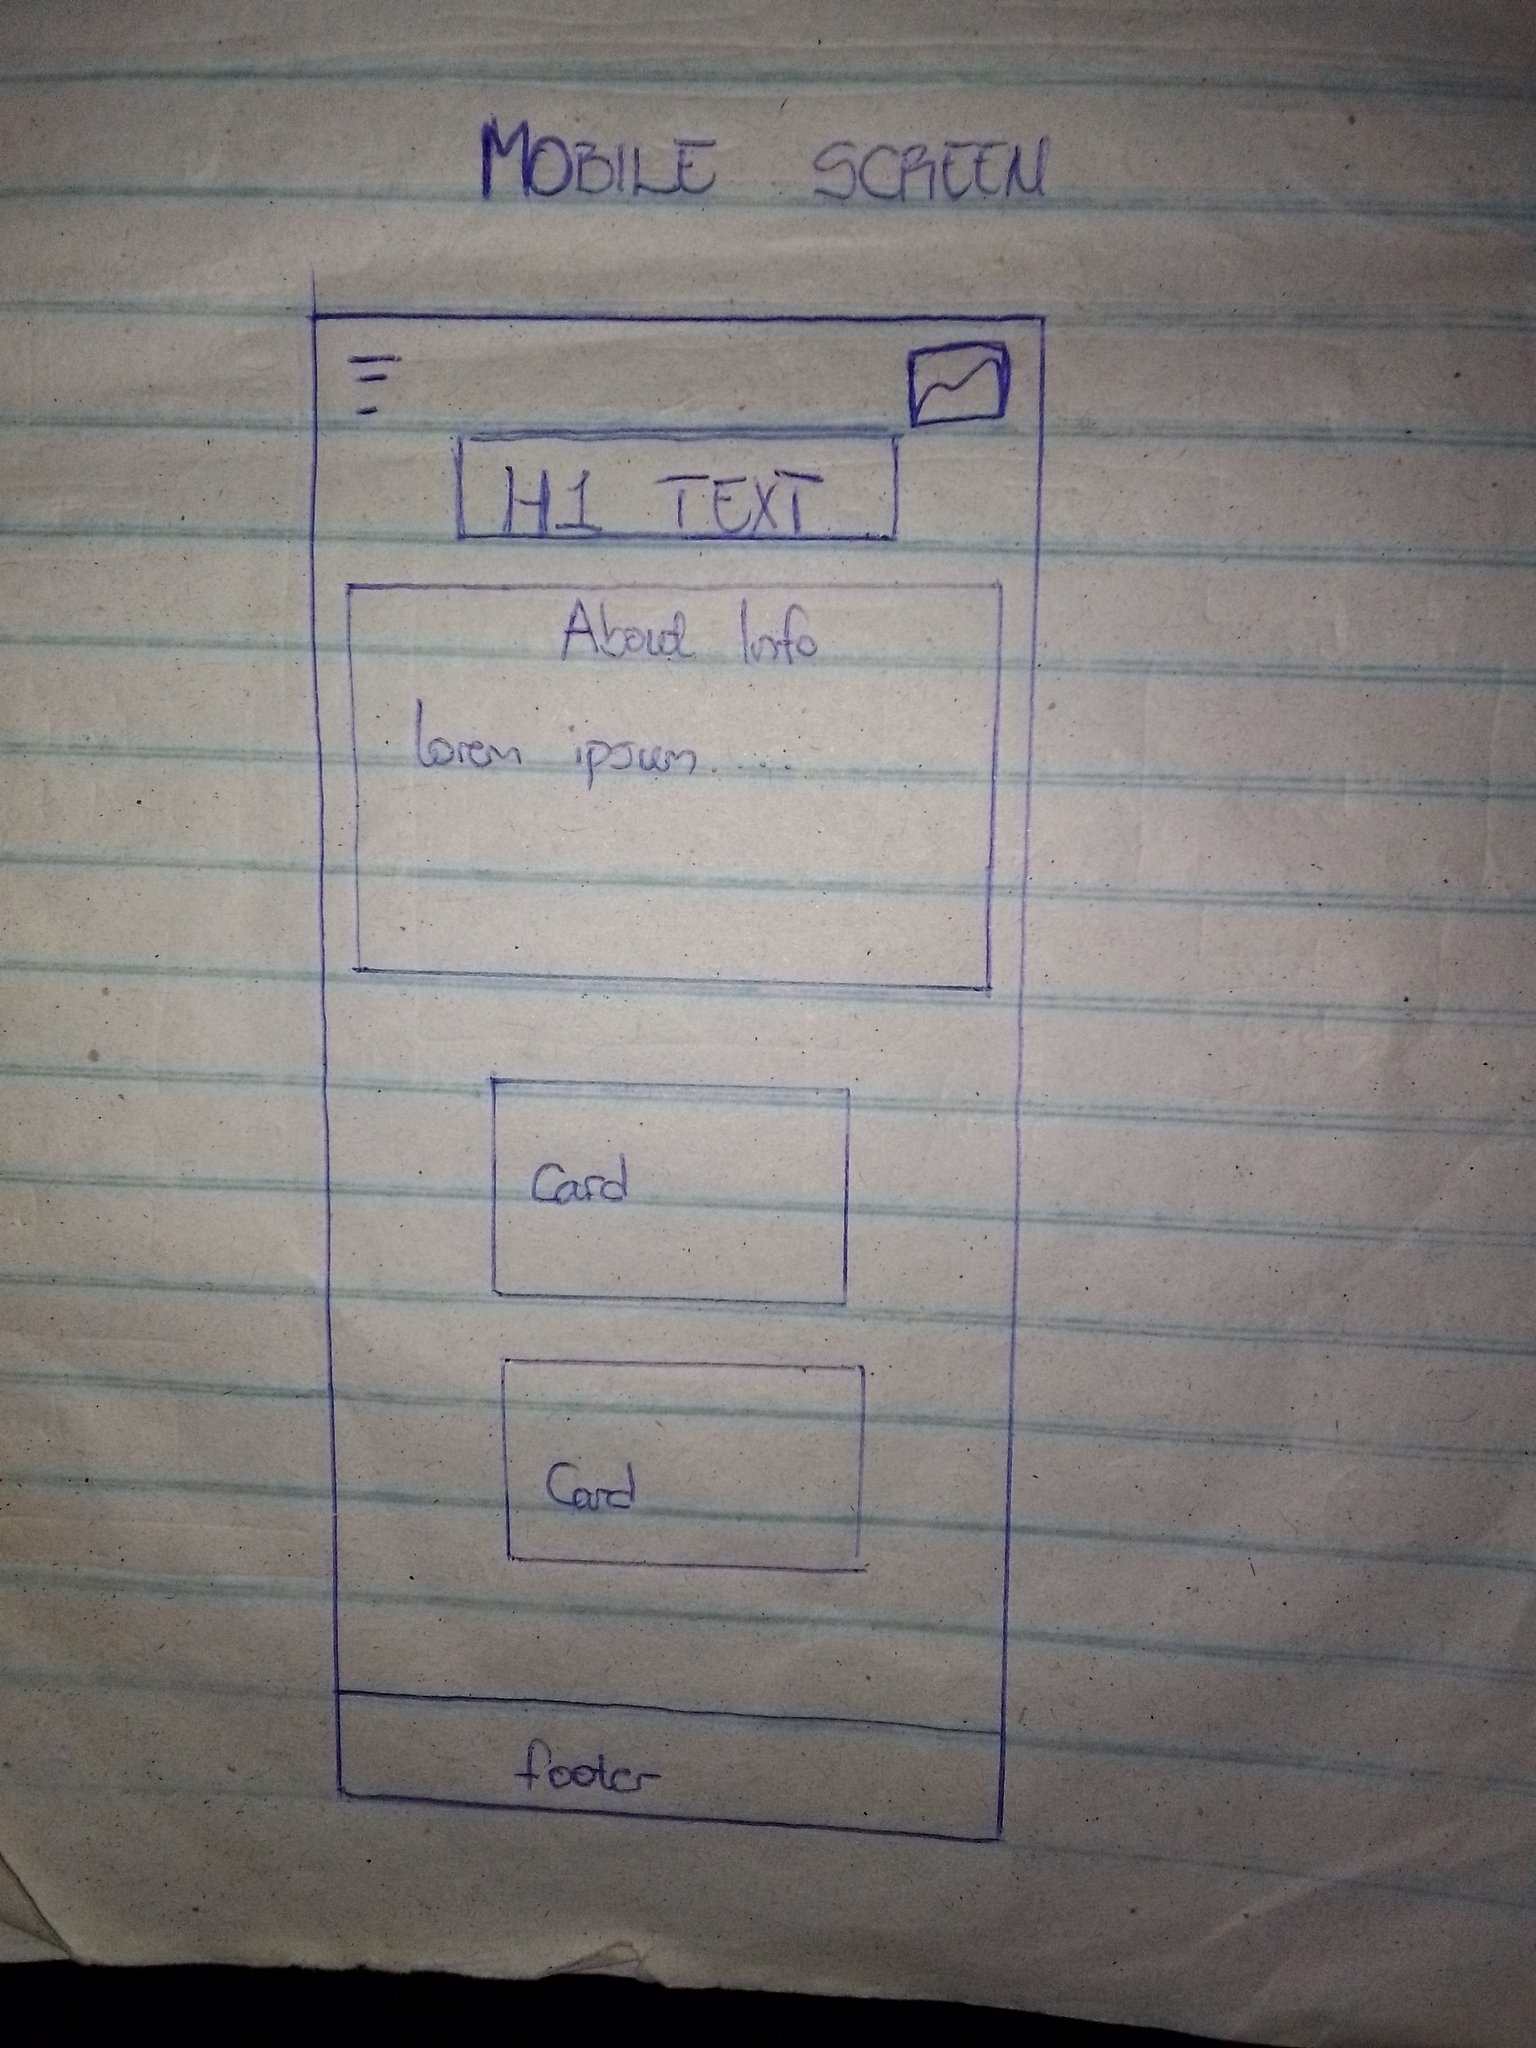 MOBILE SCREEN
H1 TEXT
About Info
lorem ipsum.....
Card
Card
footer